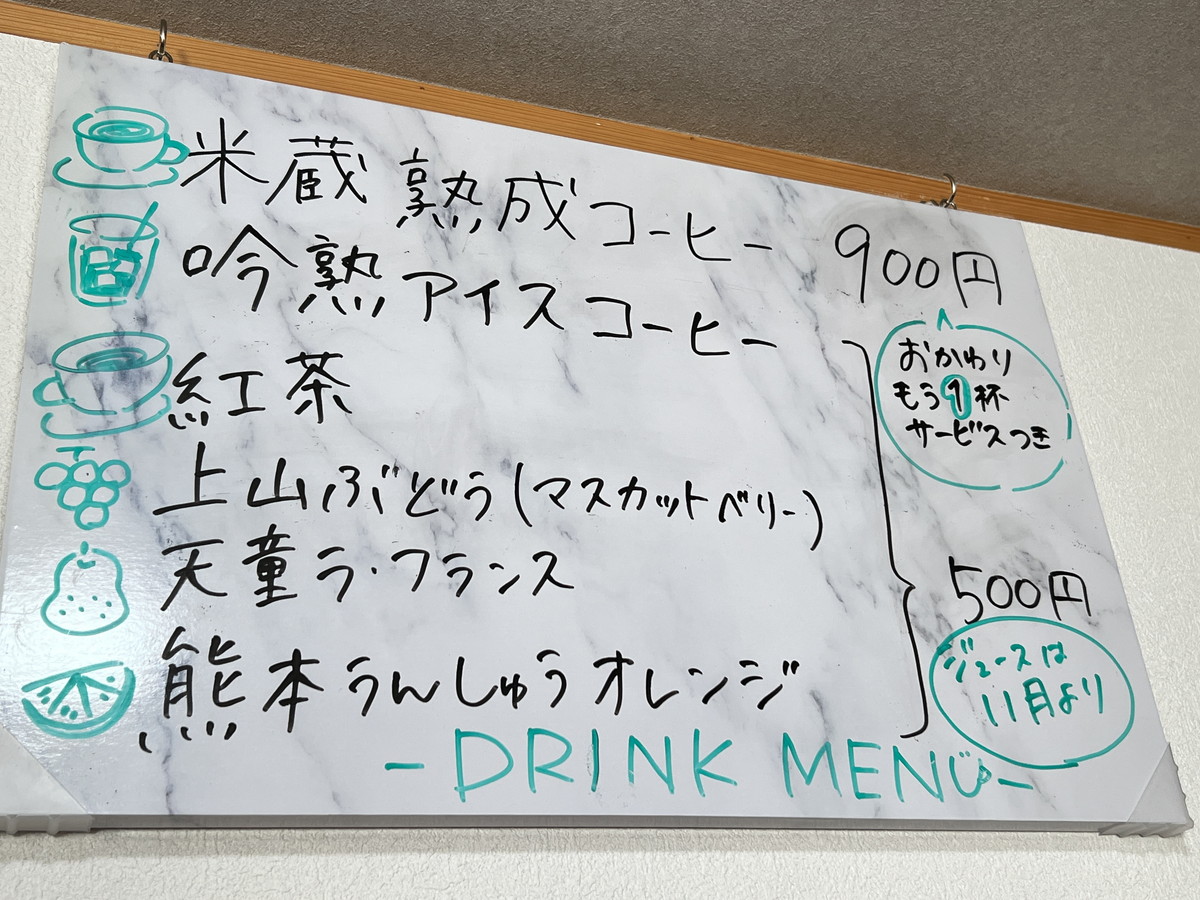 米蔵熟成コーヒー 900円
吟熟アイスコーヒー
おかわり
もう1杯
サービスつき
紅茶
上山ぶどう(マスカットベリー)
天童ラ・フランス
500円
熊本うんしゅうオレンジ
ジュースは
11月より
-DRINK MENU-